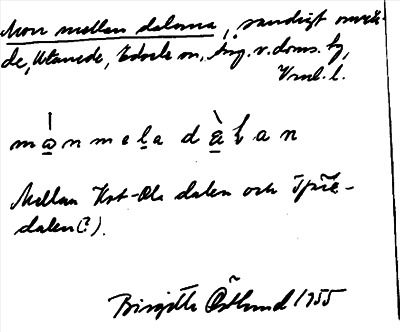 Mon mellan dalarna, sandigt områ-
de, Utanede, Edsele sn, Ång. v. doms. hg,
Vnnl. l.
mo̲nmela dàɫan
Mellan Kvt-Ola dalen och
dalen(?).
Birgitta Östlund 1955